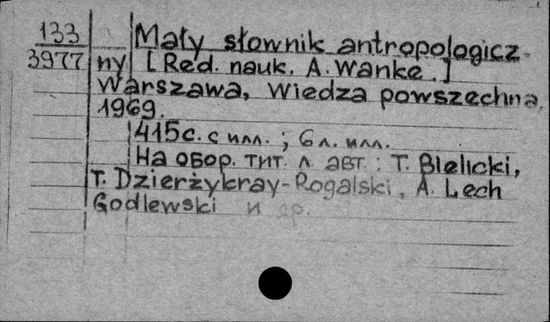 133
3977
Mały słownik antropologicz-
ny [Red. nauk. A. Wanke.]
Warszawa, Wiedza powszechna,
1969.
415с. с илл. ; 6 л. илл.
На обор. тит. л. авт.: T. Bielicki,
T. Dzierżykray-Rogalski, A. Lech
Godlewski и др.